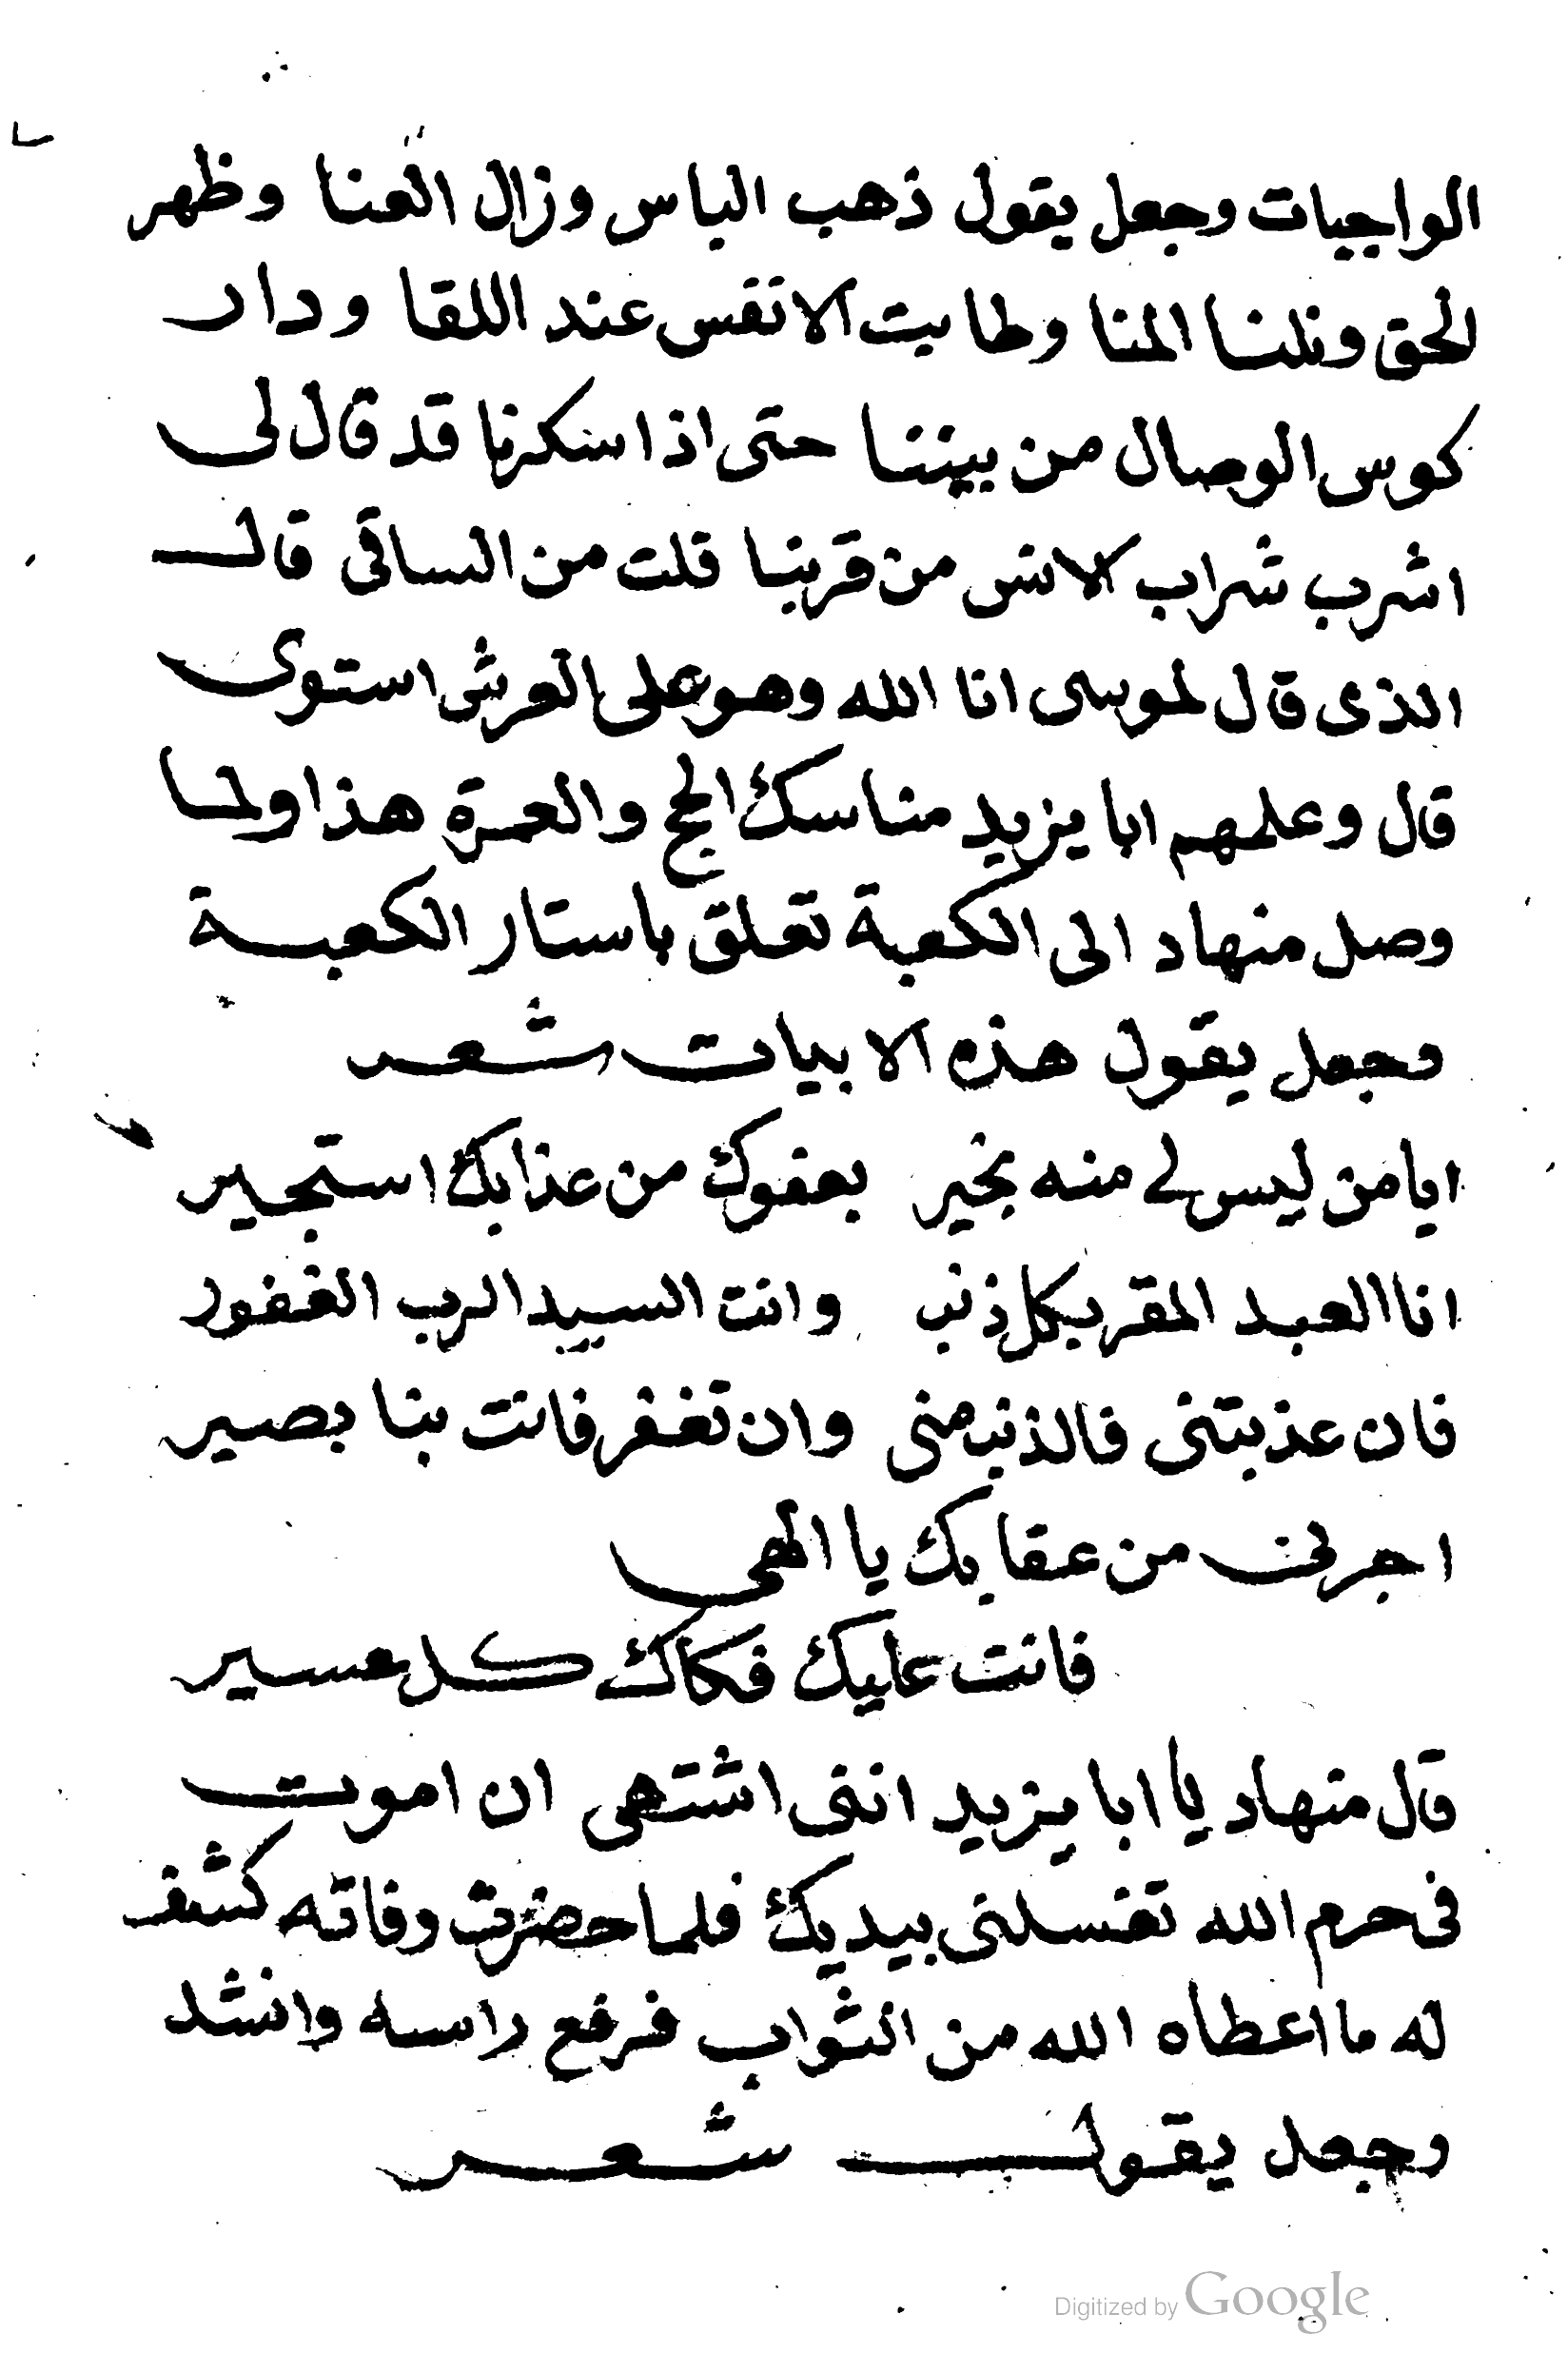 الواجبات وجعل يقول ذهب الباس وزال العنا وظهر
الحق ونلنا المنا وطابت الانفس عند اللقا ودار
كوس الوصال من بيننا حتى اذا سكرنا قد قال لى
اشرب شراب الانس من قربنا قلت من الساقى قال
الذى قال لموسى انا الله وهو على العرش استوى
قال وعلمهم ابا يزيد مناسك الحج والعمرة هذا ولما
وصل منهاد الى الكعبة تعلق باستار الكعبة
وجعل يقول هذه الابيات شعر
ايا من ليس لى منه بخير بعفوك من عذابك استجير
انا العبد المقر بكل ذنب وانت السيد الرب الغفور
فان عذبتنى فالذنب منى وان تغفر فانت بنا بصير
اجرنى من عقابك يا الهى
فانت عليك فكاك كل عسير
قال منهاد يا ابا يزيد اننى اشتهى ان اموت
فى حرم الله تغسلنى بيديك فلما حضرت وفاته كشف
له ما اعطاه الله من الثواب فرفع راسه وانشد
وجعل يقول شعر
Digitized by Google